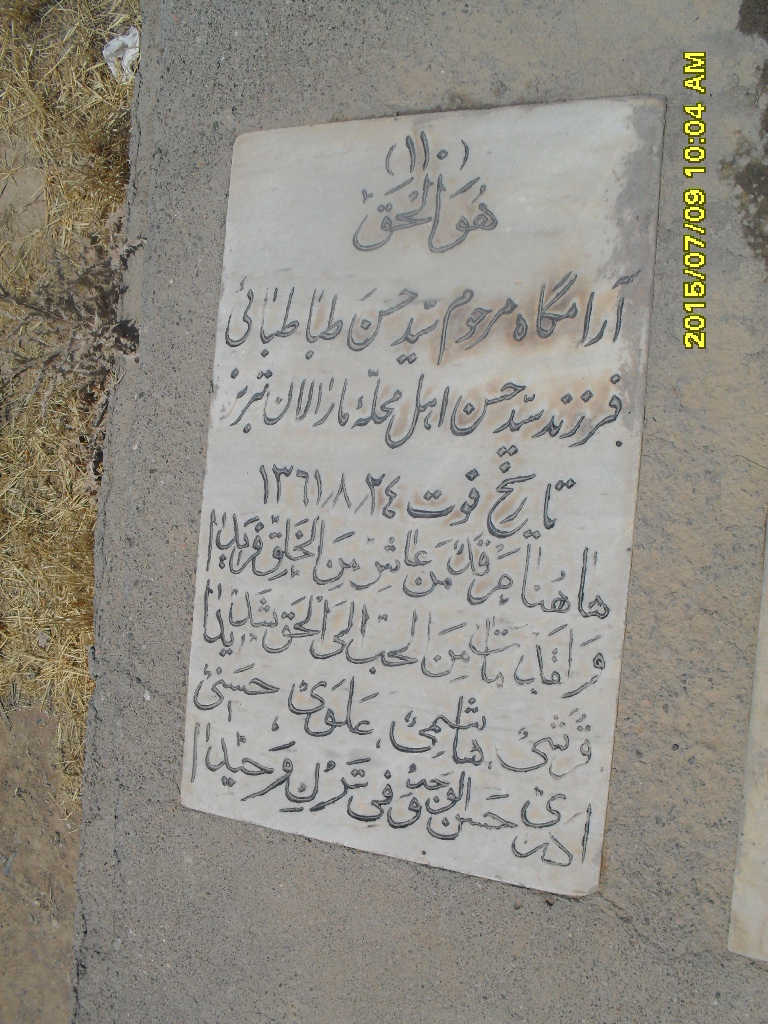 (١١٠)
هُوَ الحَقّ
آرامگاه مرحوم سّید حسن طباطبائی
فرزند سّید حسن اهل محلّهٔ مارالان تبریز
تاریخ فوت ١٣٦١/٨/٢٤
هٰا هُنٰا مَرقَدُ مَن عٰاشَ مِنَ الخَلقِ فَریدٰا
وَ قَد مٰاتَ مِنَ الحبّ الیَ الحَق شَدیدٰا
قُرَشیٌ هٰاشمیٌ عَلَویٌ حَسَنیٌ
حَسَن الوَجه وَ فی وَحیدٰا
2015/07/09 10:04 AM